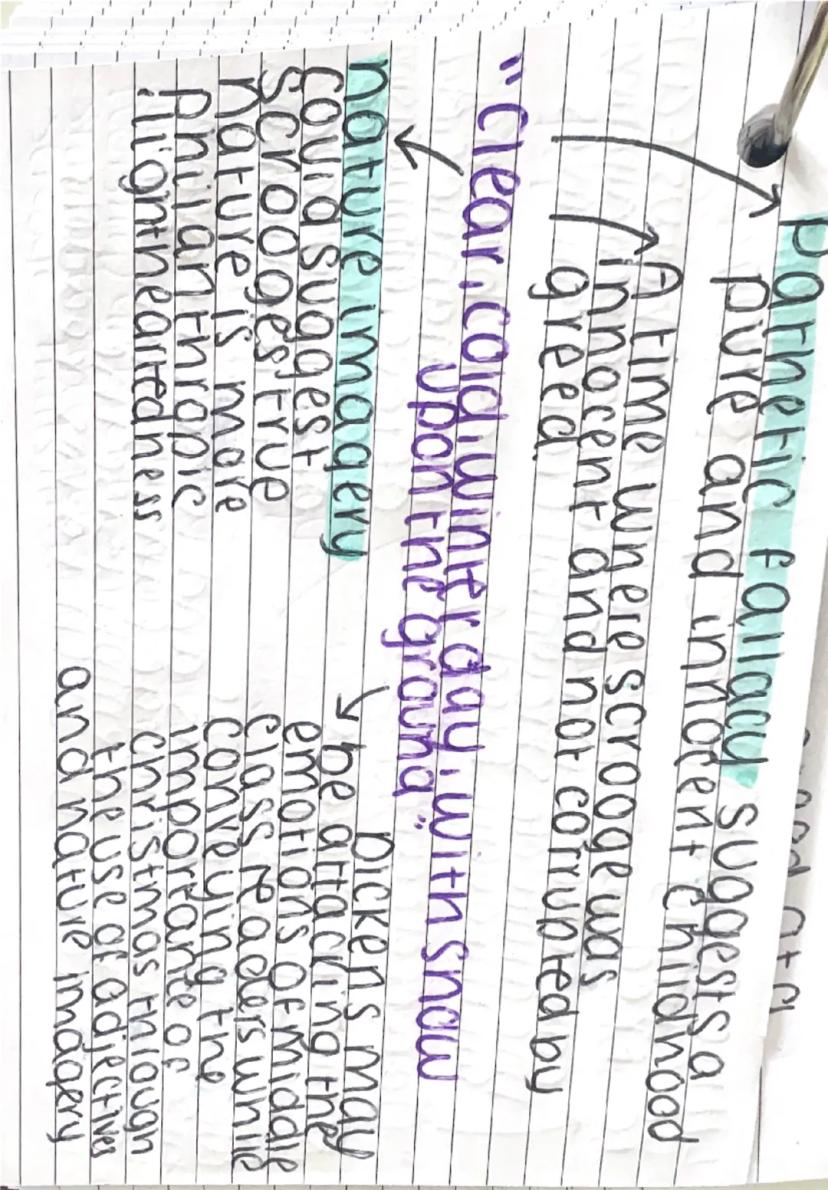 pathetic fallacy suggests a
pure and innocent childhood
A time where scrooge was
innocent and not corrupted by
greed.
"clear, cold, winter day, with snow
upon the ground"
nature imagery
could suggest
scrooges true
nature is more
philanthropic
/lightheartedness
Dickens may
be attacking the
emotions of middle
class readers while
conveying the
importance of
christmas through
the use of adjectives
and nature imagery